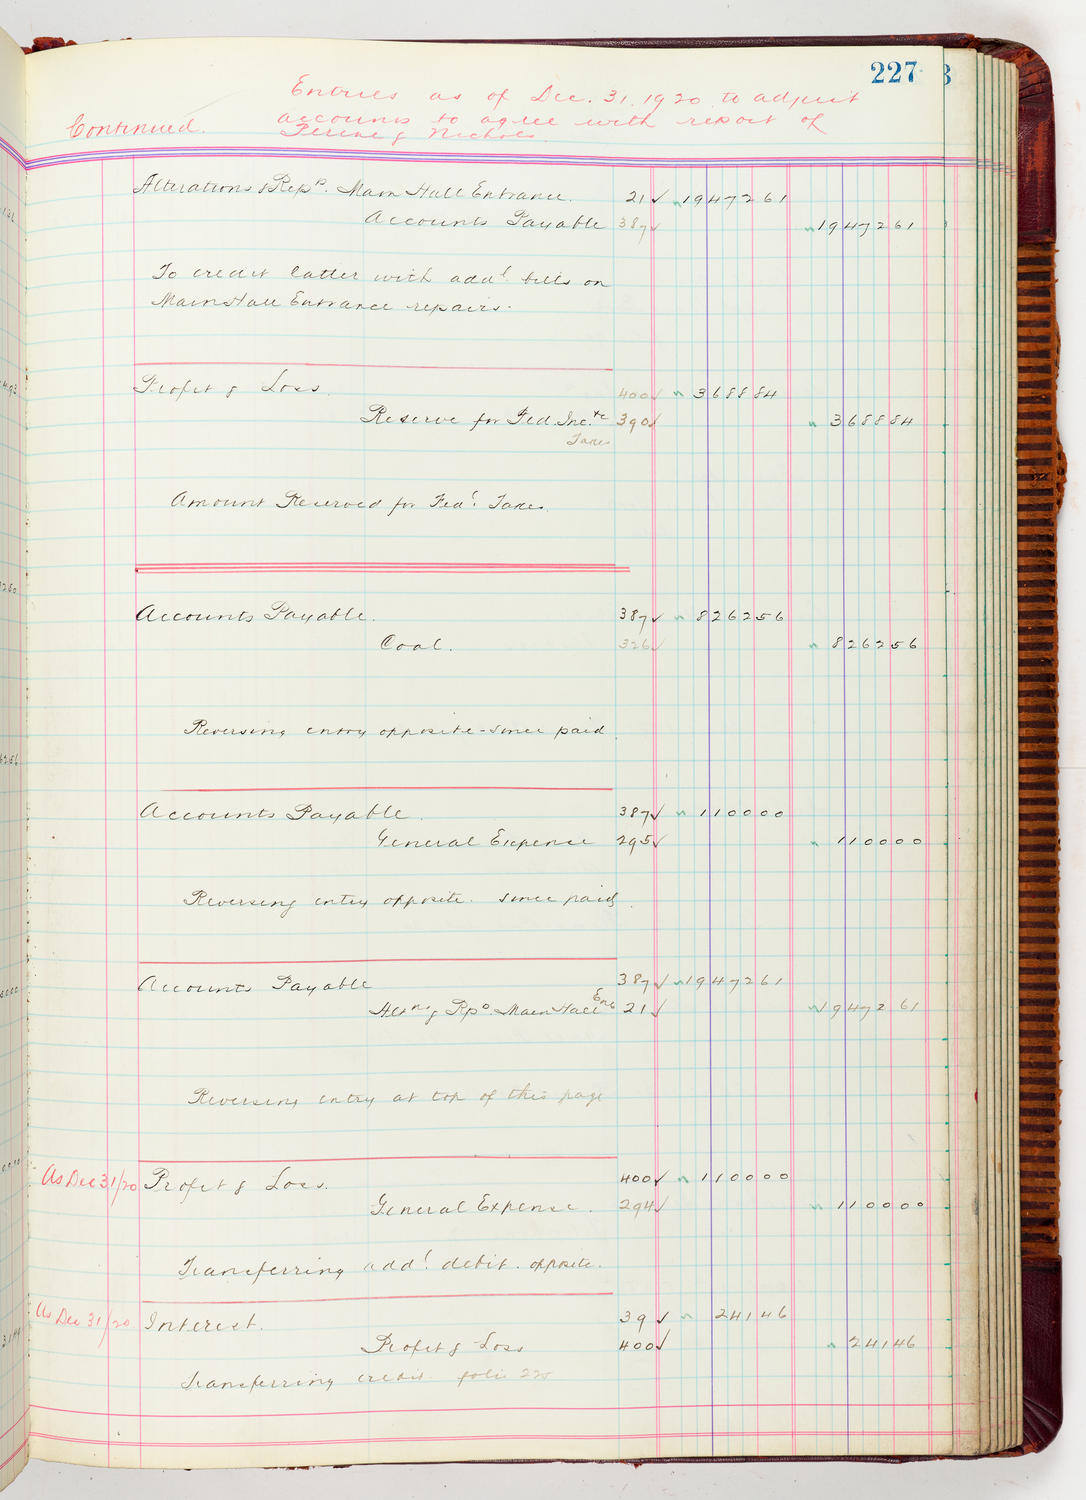 227
Entries as of Dec. 31. 1920 to adjust
Continued. accounts to agree with report of
Perine & Nichols
Alterations & Reps. Main Hall Entrance. 21 ✓ 19472 61
Accounts Payable 387 ✓ 19472 61
To credit latter with addl. bills on
Main Hall Entrance repairs.
Profit & Loss. 400 ✓ 3688 84
Reserve for Fed. Inc. etc 390 ✓ 3688 84
Taxes
Amount Reserved for Fedl. Taxes.
Accounts Payable. 387 ✓ 8262 56
Coal. 326 ✓ 8262 56
Reversing entry opposite - since paid
Accounts Payable. 387 ✓ 1100 00
General Expense 295 ✓ 1100 00
Reversing entry opposite. since paid.
Accounts Payable 387 ✓ 19472 61
Altns & Rps. Main Hall Ent 21 ✓ 19472 61
Reversing entry at top of this page
As Dec 31/20 Profit & Loss. 400 ✓ 1100 00
General Expense. 294 ✓ 1100 00
Transferring addl. debit. opposite.
As Dec 31/20 Interest. 39 ✓ 241 46
Profit & Loss 400 ✓ 241 46
Transferring credit folio